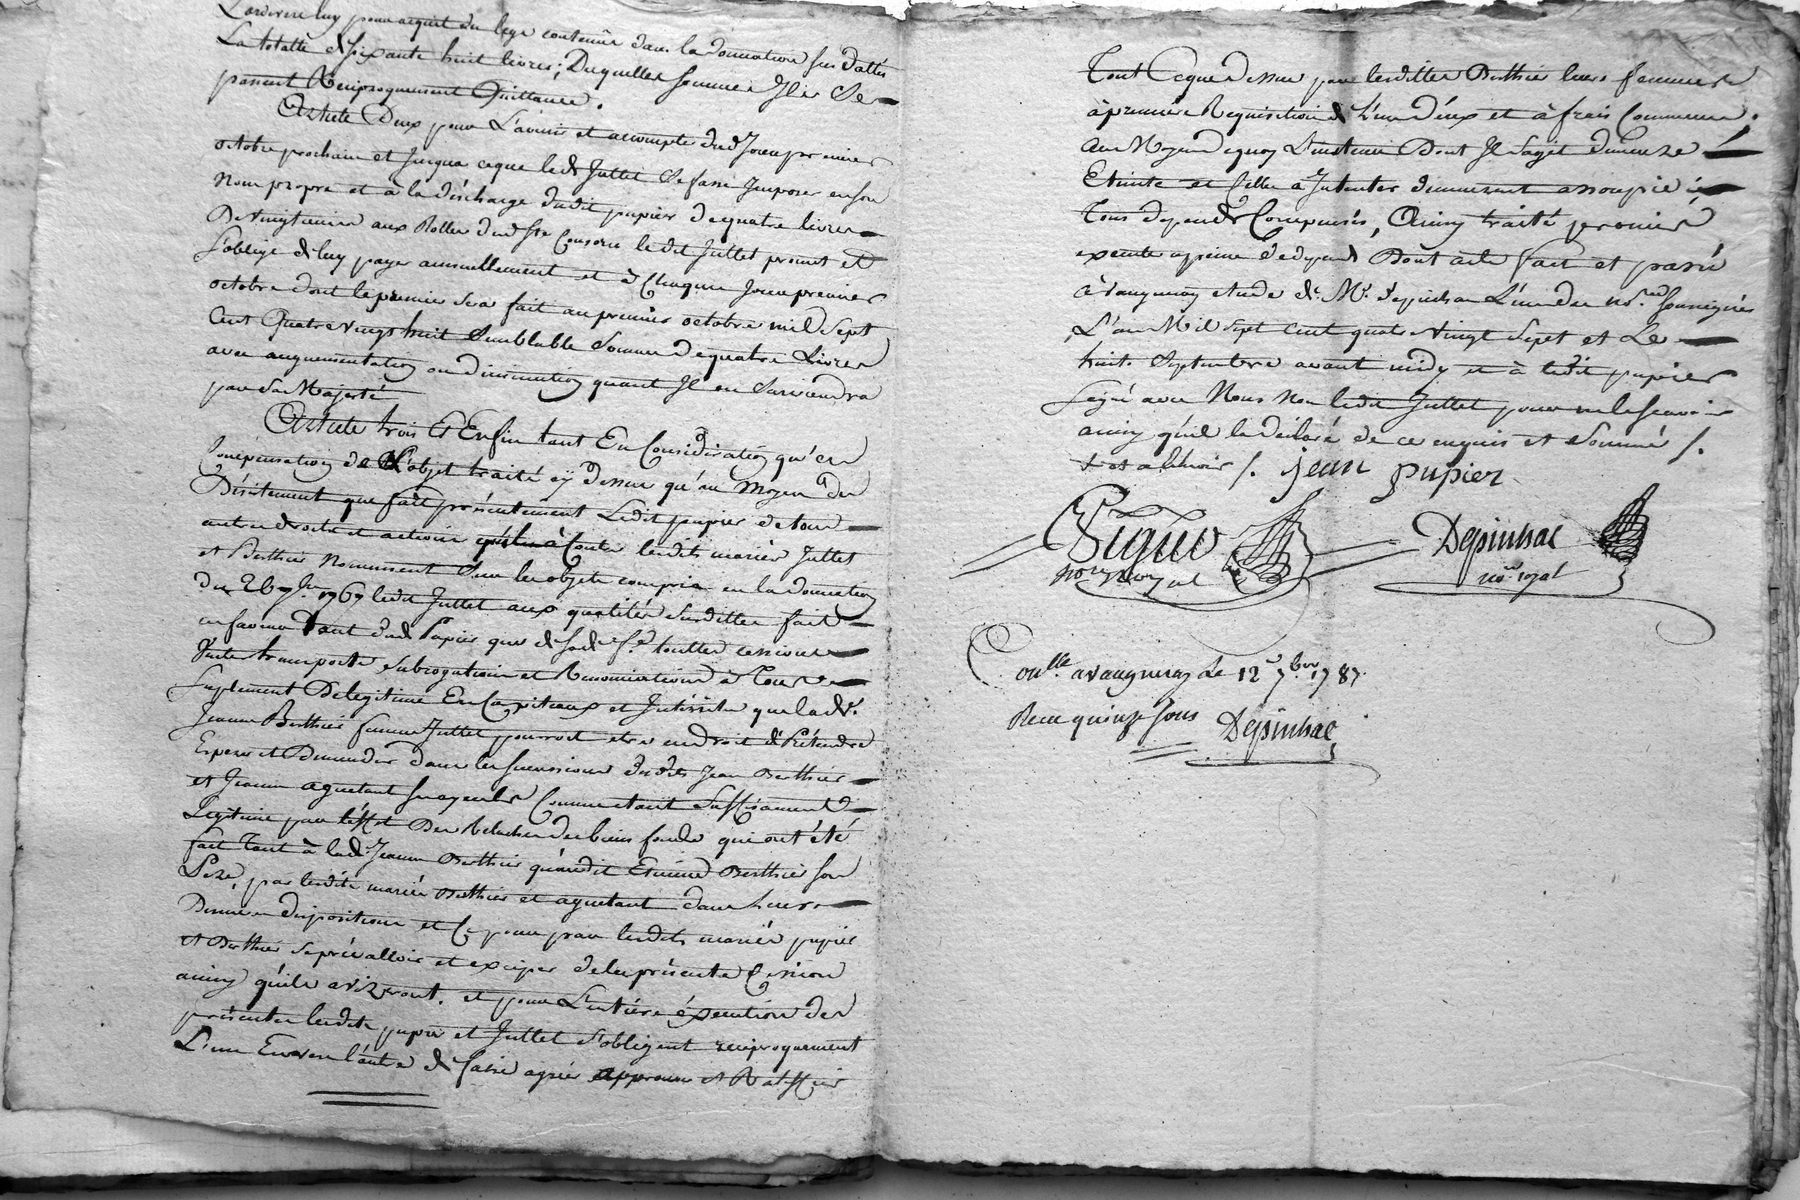 pour acquit du legs contenüe dans la donnation sus dattés
La totalle & soixante huit livres; Desquelles sommes Ils se
passent Reciproquement Quittance.
Article Deux pour L'avenir et acompte dud. Jour premier
octobre prochain et Jusqua ceque led. Jullet se fasse Imposer en son
Nom propre et à la décharge dudit pupier de quatre livres
De vingtieme aux Rolles dud. Ste Consorce ledit Jullet promet et
s'oblige de luy payer annuellement et à Chaque Jour premier
octobre dont le premier sera fait au premier octobre mil Sept
Cent Quatre vingt huit Semblable Somme de quatre Livres
avec augmentation ou diminution quant Il en Surviendra
par Sa Majesté
Article trois Et Enfin tant En Considération qu'en
Compensation de L'objet traité cy dessus qu'au moyen du
Désistement que fait présentement Ledit pupier de tous
autres droits et actions contre lesdits mariés Jullet
et Berthier Nommement sur les objets compris en la Donnation
du 26 1767 ledit Jullet aux qualités Susdittes fait
en faveur tant dud. Pupier que de sad. fe. touttes cessions
transports Subrogations et Renonciations à tous
Suplement De legitime En Capitaux et Intérêts que lad.
Jeanne Berthier femme Jullet pourroit etre en droit de Prétendre
Esperer et Demander dans les successions desdits Jean Berthier
et Jeanne aguetant ses ayeuls Comme étant Suffisamment
Legitimé par l'effet Des Relaches des biens fonds qui ont été
fait Tant à lad. Jeanne Berthier qu'audit Etienne Berthier son
Pere, par lesdits mariés Berthier et aguetant dans leurs
Dernieres dispositions et Ce pour par lesdits mariés pupier
et Berthier se prévalloir et exciper de la présente Cession
ainsy qu'ils avizeront. et pour L'entiere éxécution des
présentes lesdits pupier et Jullet s'obligent reciproquement
L'un Envers l'autre de faire agréer approuver et Ratiffier
Tout Ceque dessus par lesdittes Berthier leurs femmes
à premiere Requisition de L'un d'eux et à frais Communs.
au Moyen dequoy L'instance Dont Il sagit demeure
Eteinte et Celle à Intenter demeurent assoupie
Tous depends Compensés, Ainsy traité promis
à peine de depends Dont acte fait et passé
à vaugneray etude de Me. Depinhac L'un des nres. soussignés
L'an Mil sept cent quatre Vingt Sept et Le
huit Septembre avant midy et à ledit pupier
signé avec Nous Non ledit Jullet pour ne le scavoir
ainsy qu'il la déclaré de ce enquis et Sommé /.
jean pupier
nore. royal
Depinhac
nore. royal
Conlle. à vaugneray le 12 7bre 1787
Recu quinze sous Depinhac